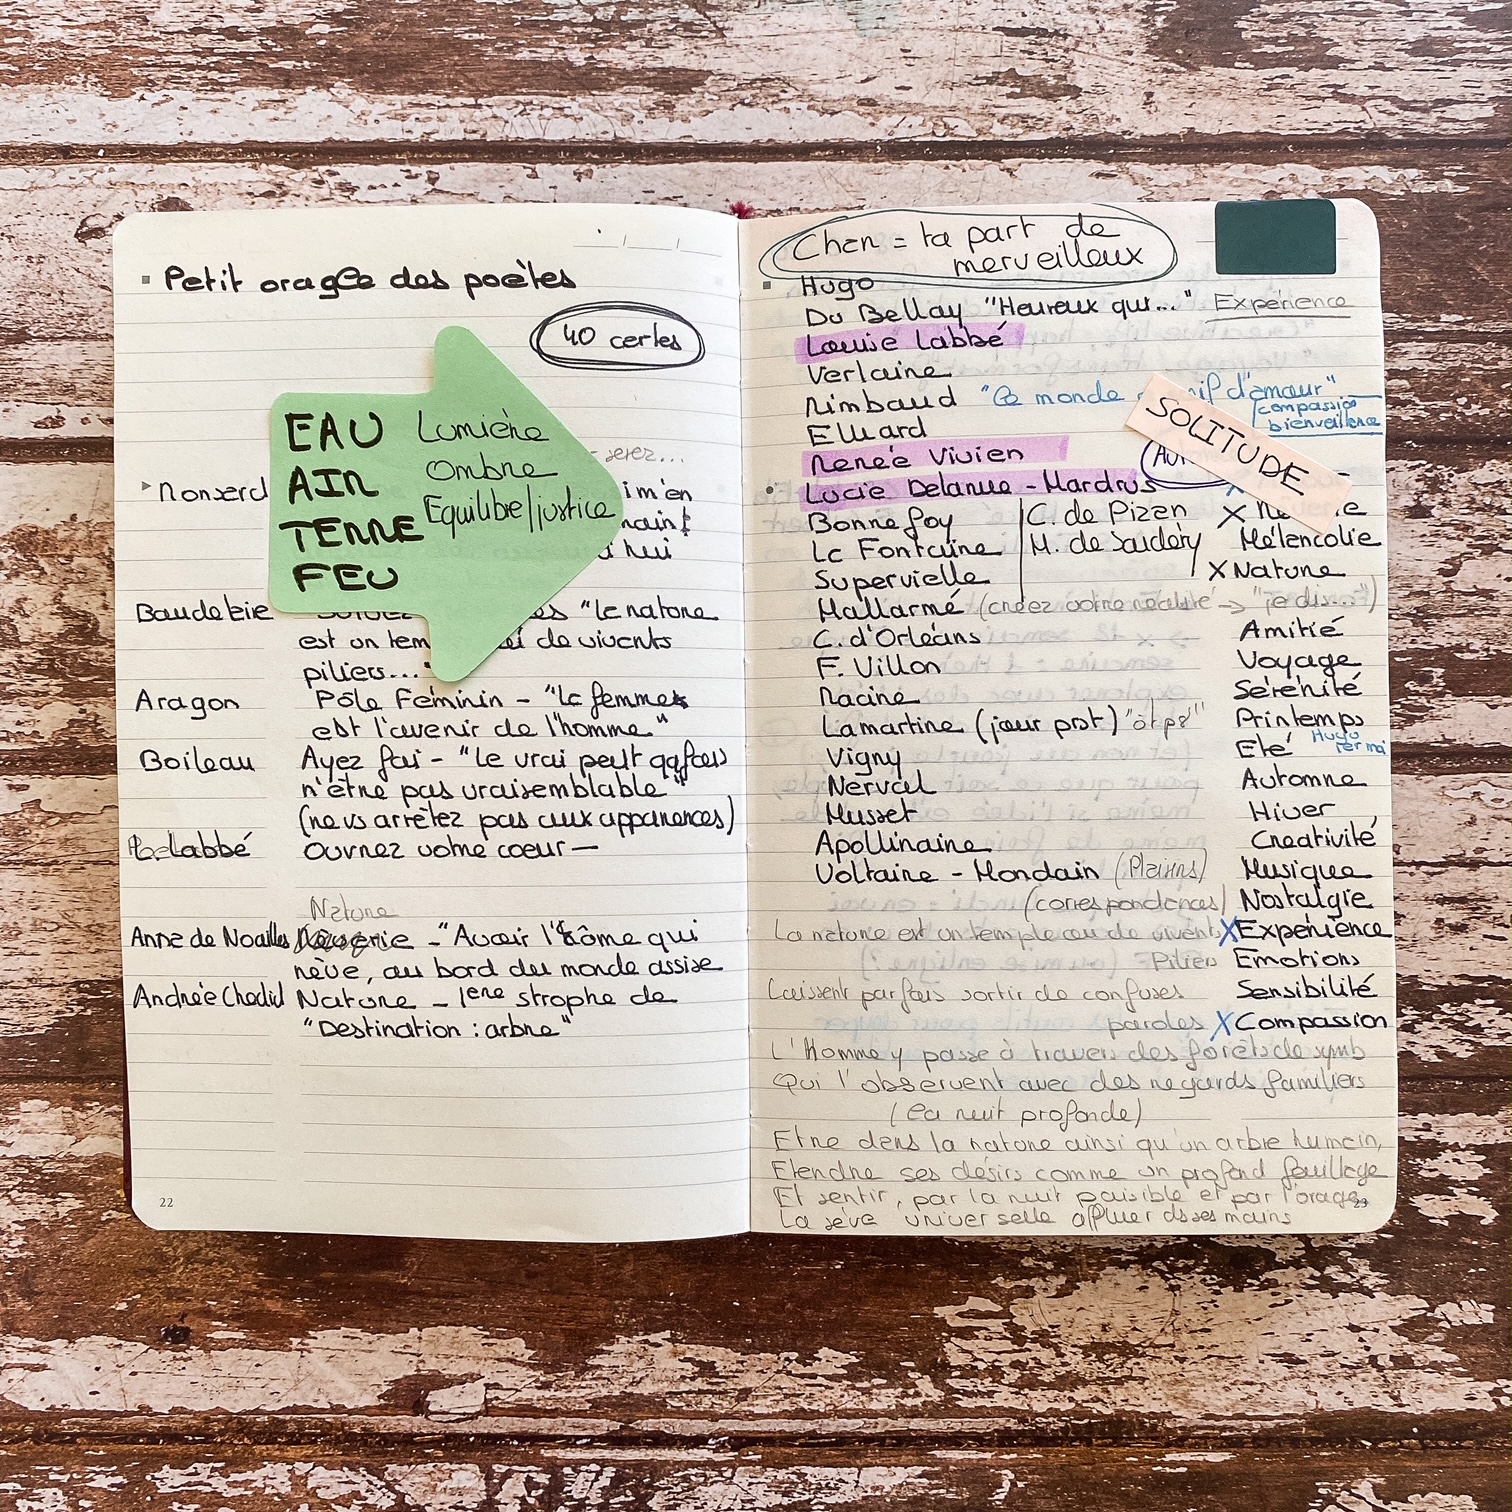 Petit oracle des poètes
40 cartes
EAU
AIR
TERRE
FEU
Lumière
Ombre
Equilibre/justice
Ronsard
im'en
Baudelaire
"la nature
est un tem de vivants
piliers..."
Aragon
Pôle Féminin - "la femme
est l'avenir de l'homme"
Boileau
Ayez foi - "Le vrai peut qqfois
n'être pas vraisemblable"
(ne vs arrêtez pas aux apparences)
Labbé
Ouvrez votre coeur —
Nature
Anna de Noailles
Rêverie - "Avoir l'âme qui
rêve, au bord du monde assise
Andrée Chedid
Nature - 1ere strophe de
"Destination : arbre"
22
Chan = ta part de
merveilleux
Hugo
Du Bellay "Heureux qui..." Expérience
Louise Labbé
Verlaine
Rimbaud "Ce monde d'amour"
compassion
bienveillance
SOLITUDE
Eluard
Renée Vivien
Lucie Delarue - Mardrus
Bonnefoy
C. de Pizan
La Fontaine
M. de Scudéry
Mélancolie
Supervielle
X Nature
Mallarmé (créez votre réalité -> "je dis...")
C. d'Orléans
Amitié
F. Villon
Voyage
Racine
Sérénité
Lamartine (jour prst) "ô tps"
Printemps
Vigny
Eté
Hugo
Nerval
Automne
Musset
Hiver
Apollinaire
Créativité
Voltaire - Mondain (Plaisirs)
Musique
(correspondances)
Nostalgie
La nature est un temple où de vivants
X Expérience
Piliers
Emotions
Laissent parfois sortir de confuses
Sensibilité
paroles
X Compassion
L'Homme y passe à travers des forêts de symb
Qui l'observent avec des regards familiers
(la nuit profonde)
Etre dans la nature ainsi qu'un arbre humain,
Etendre ses désirs comme un profond feuillage
Et sentir, par la nuit paisible et par l'orage,
La sève universelle affluer ds ses mains
23